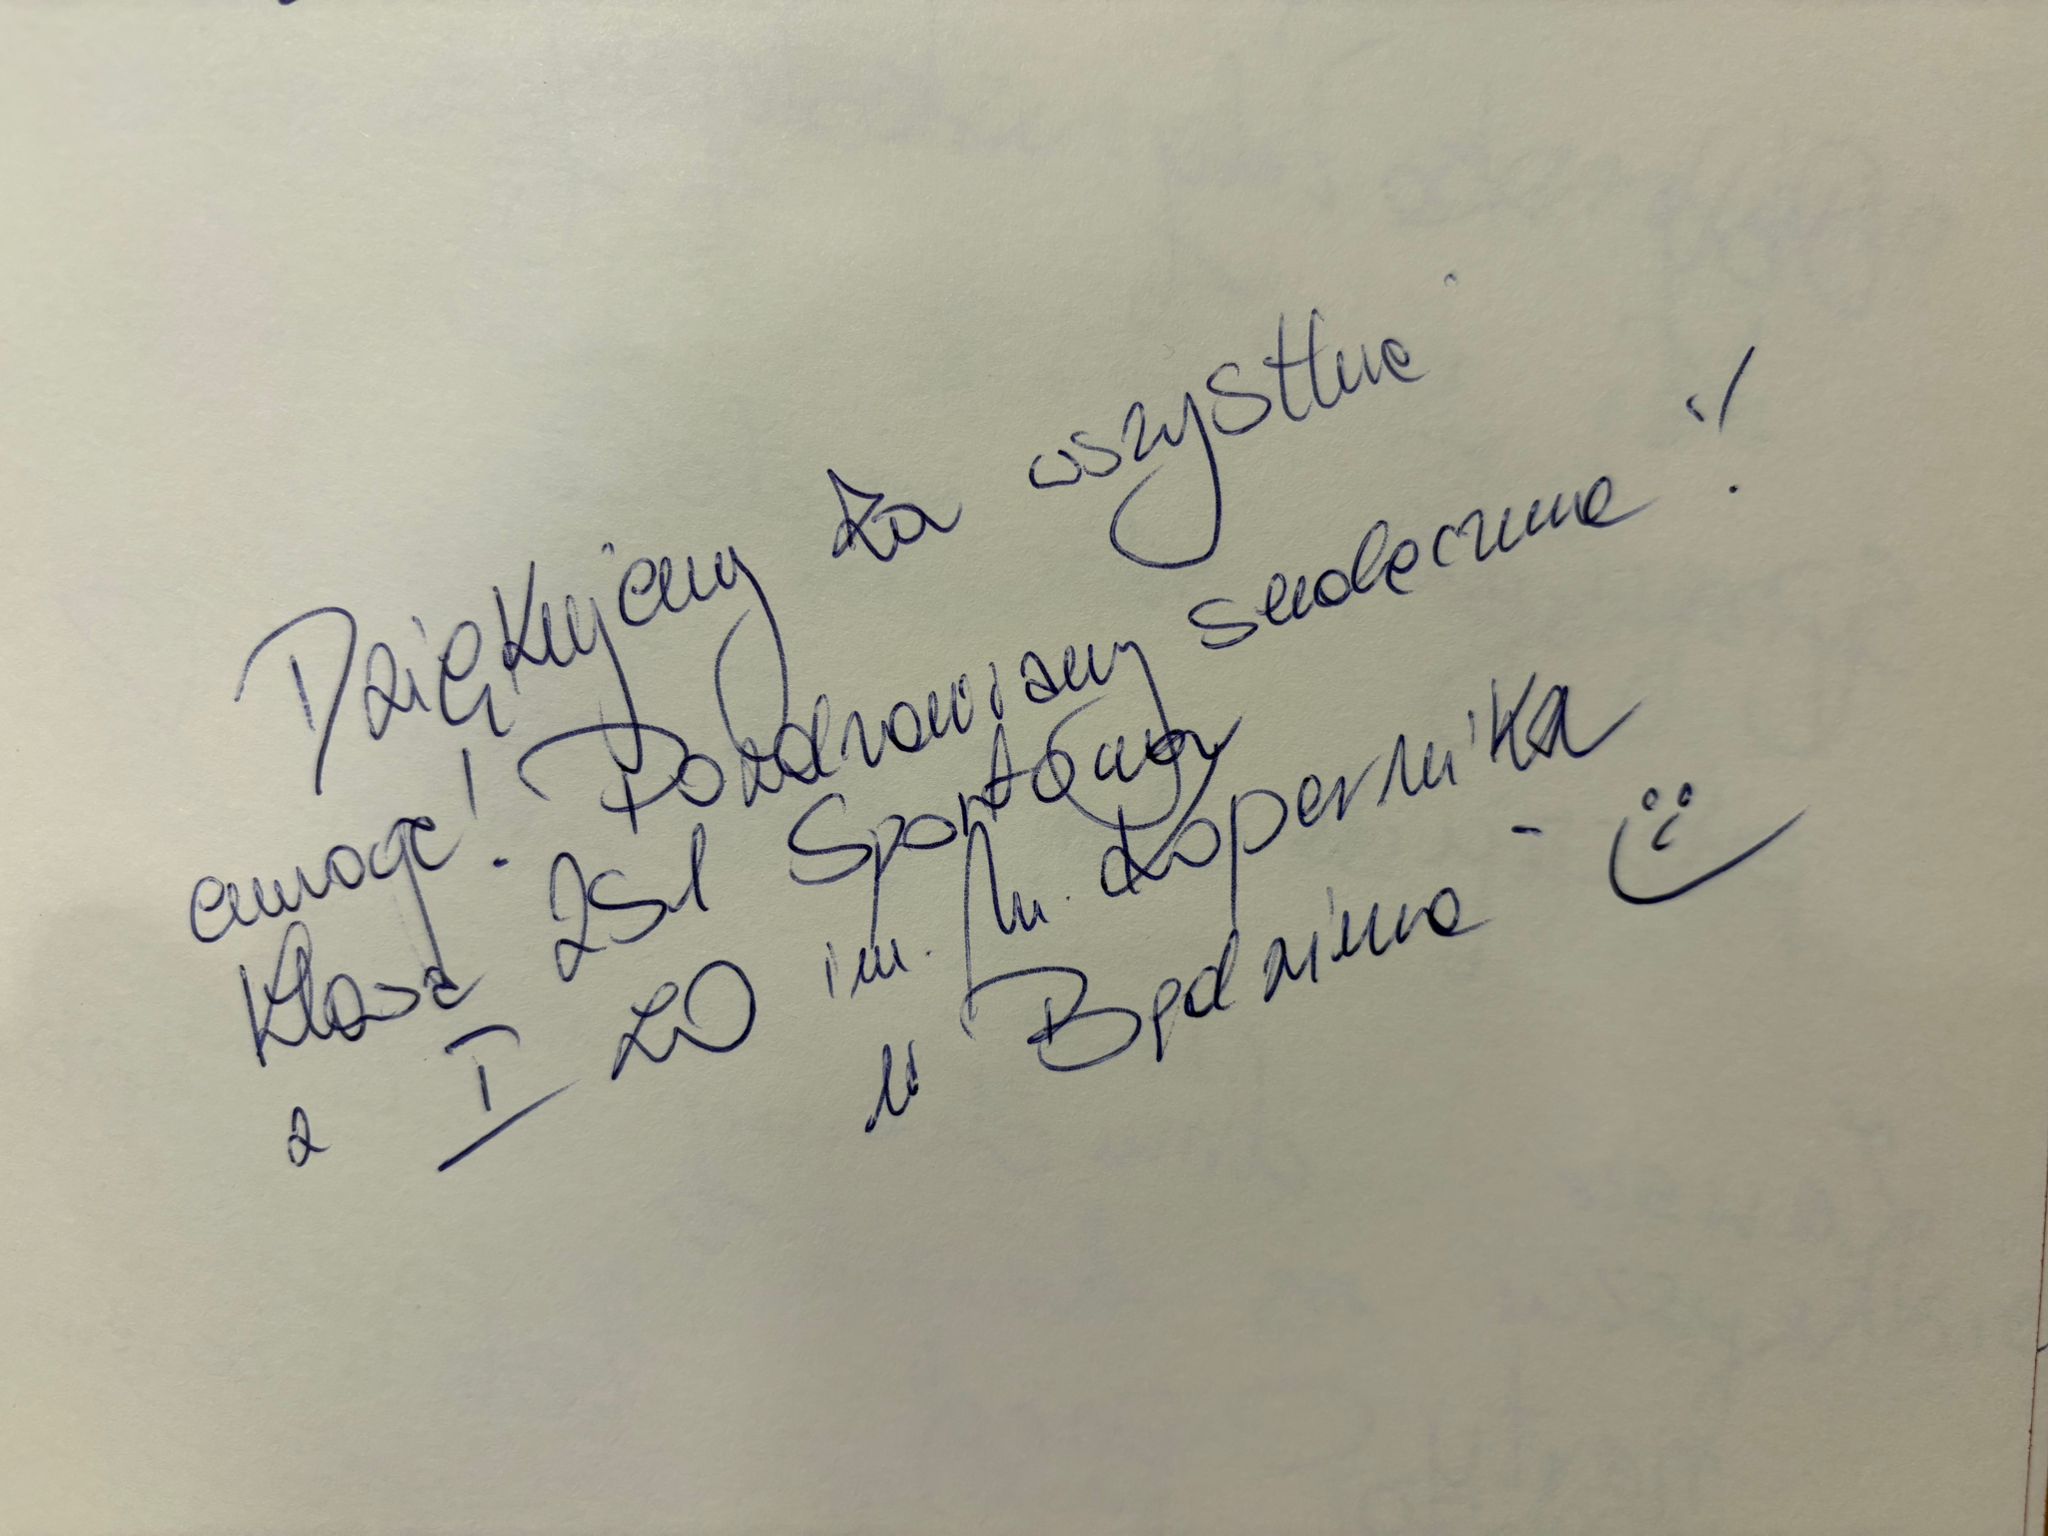 Dziękujemy za wszystkie
emocje! Pozdrawiamy serdecznie!
Klasa 2SL Sportowa
z I LO im. M. Kopernika
w Będzinie - :)